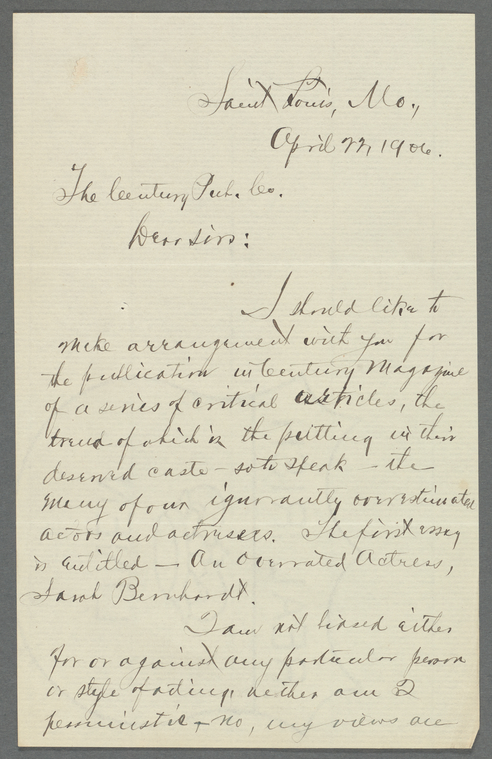 Saint Louis, Mo.,
April 22, 1906.
The Century Pub. Co.
Dear Sirs:
I should like to
make arrangement with you for
the publication in Century Magazine
of a series of critical articles, the
trend of which is the putting in their
deserved caste - so to speak - the
many of our ignorantly overestimated
actors and actresses. The first essay
is entitled - An Overrated Actress,
Sarah Bernhardt.
I am not biased either
for or against any particular person
or style of acting, neither am I
pessimistic, - no, my views are